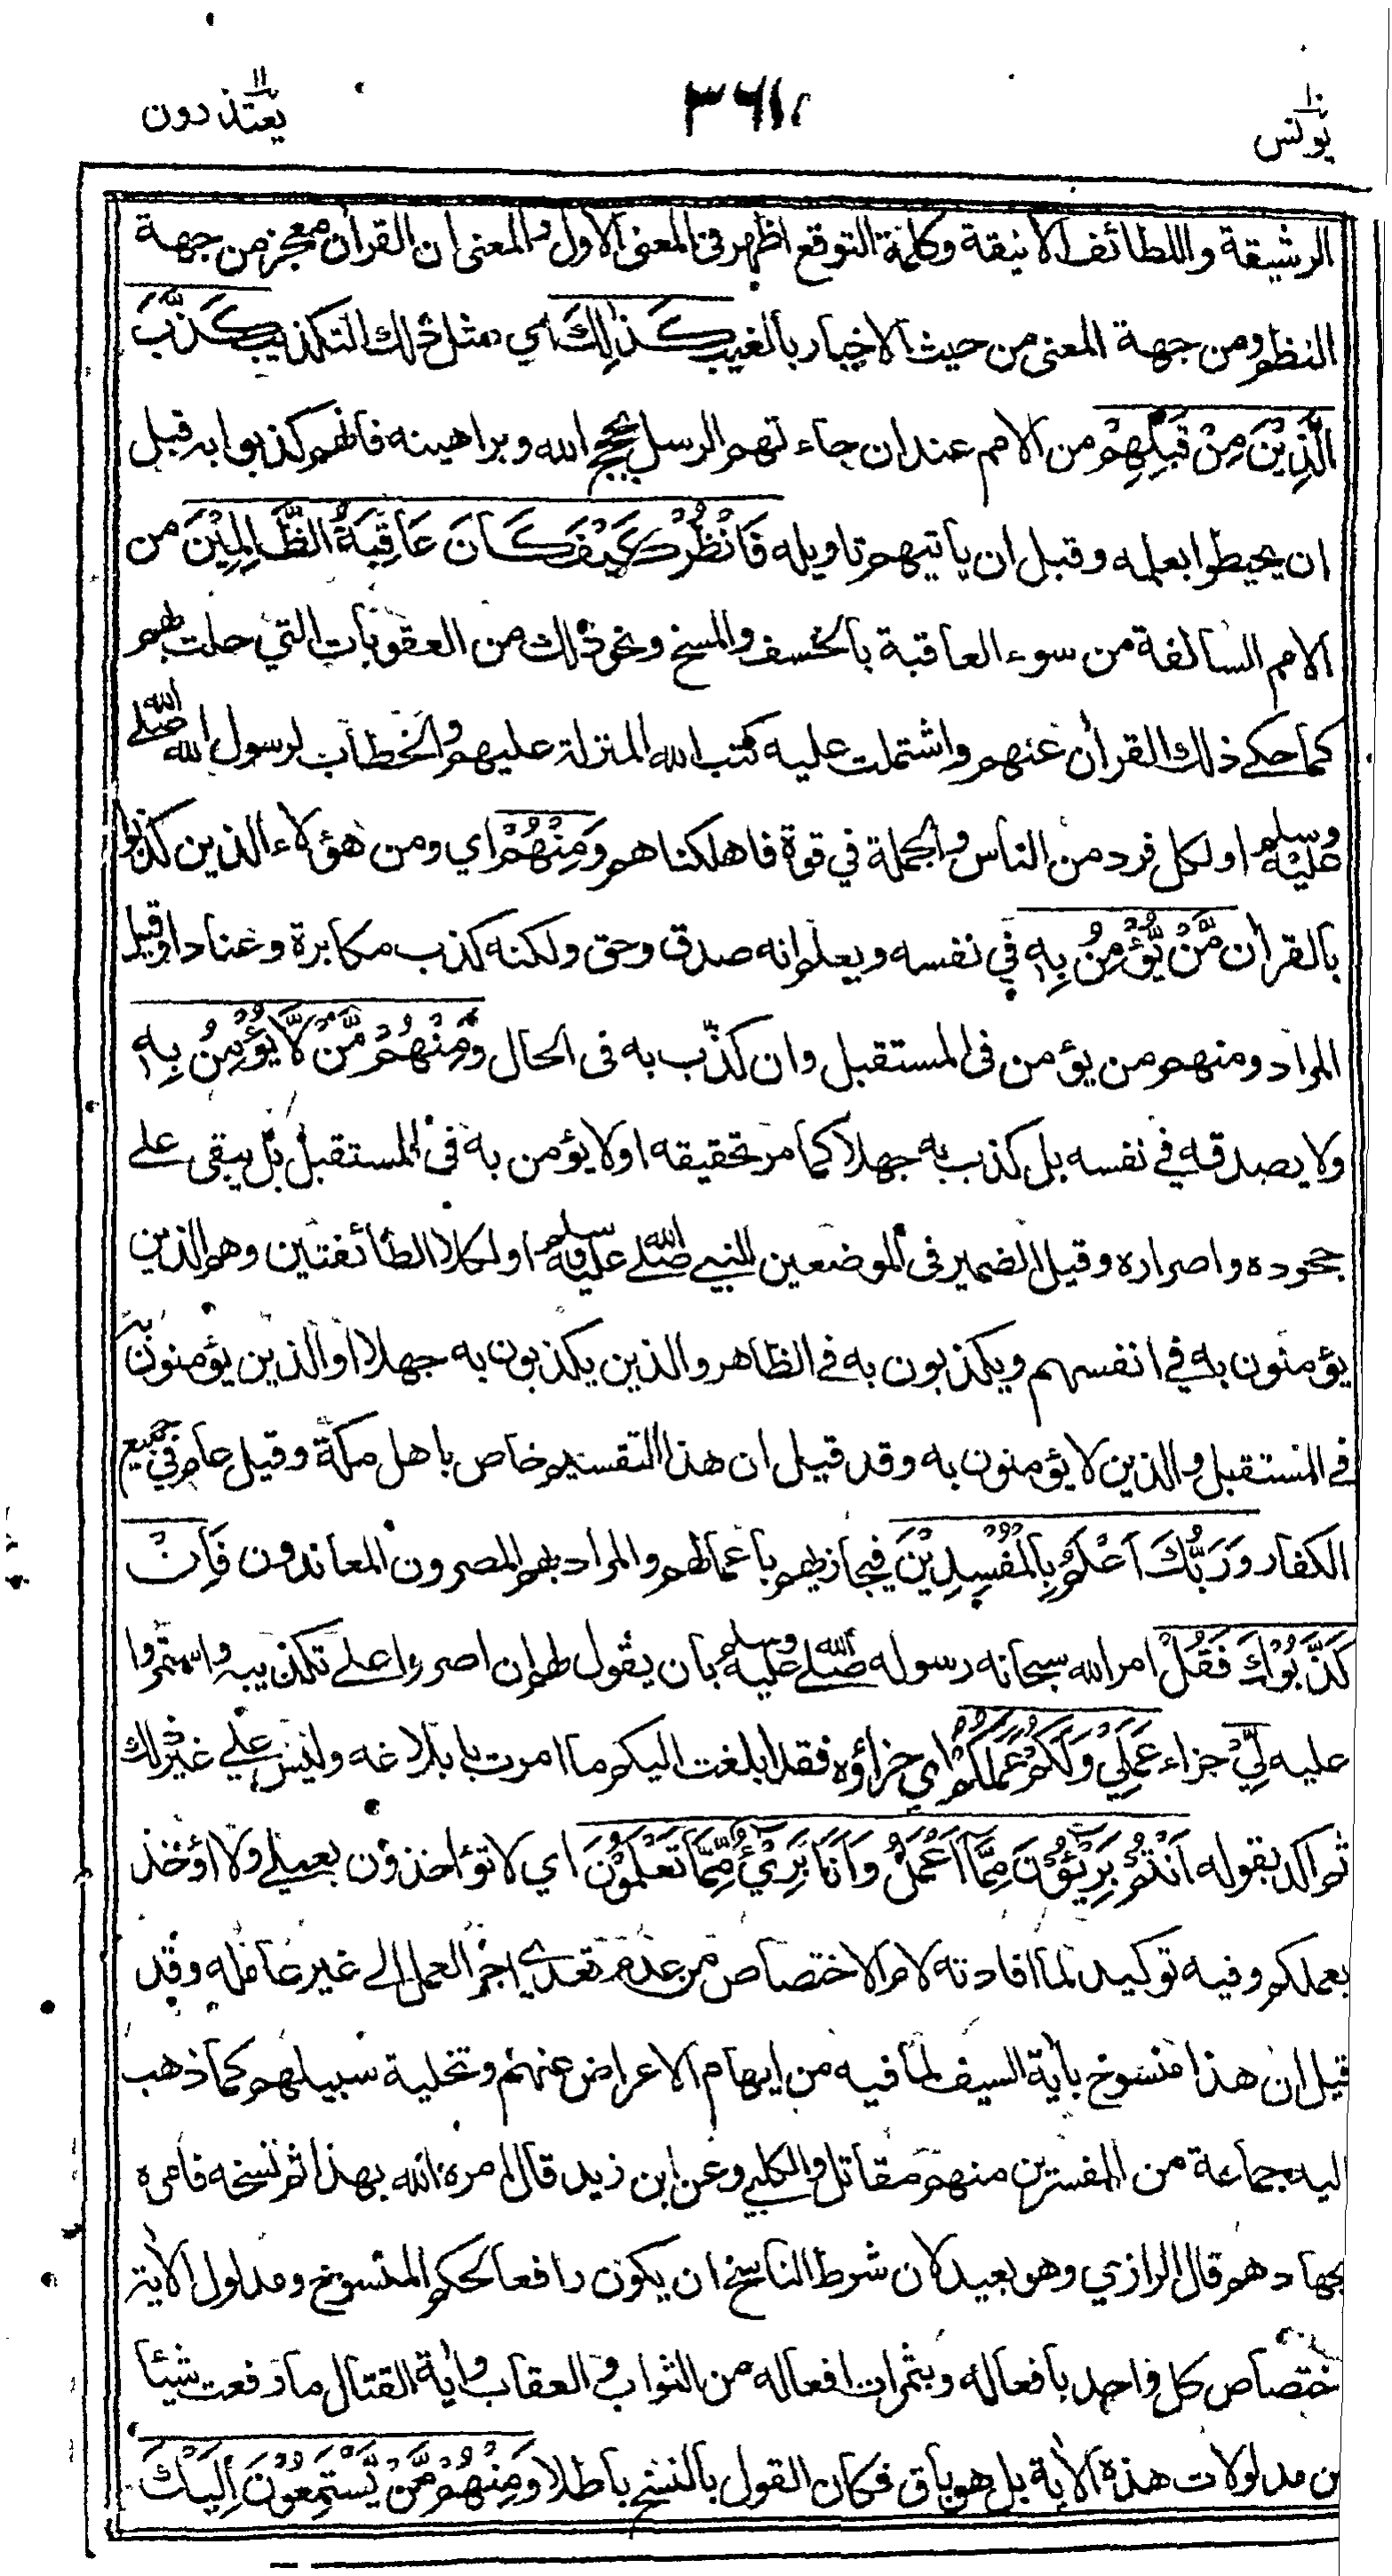 يونس ١٠
٣٦١
يعتذرون ١١
الرشيقة واللطائف الانيقة وكلمة التوقع اظهر في المعنى الاول والمعنى ان القرآن معجز من جهة
النظم ومن جهة المعنى من حيث الاخبار بالغيب كَذٰلِكَ اي مثل ذلك التكذيب كَذَّبَ
الَّذِيْنَ مِنْ قَبْلِهِمْ من الامم عند ان جاءتهم الرسل بحجج الله وبراهينه فانهم كذبوا به قبل
ان يحيطوا بعلمه وقبل ان ياتيهم تاويله فَانْظُرْ كَيْفَ كَانَ عَاقِبَةُ الظَّالِمِيْنَ من
الامم السالفة من سوء العاقبة بالخسف والمسخ ونحو ذلك من العقوبات التي حلت بهم
كما حكى ذلك القرآن عنهم واشتملت عليه كتب الله المنزلة عليهم والخطاب لرسول الله صلى الله
عليه وسلم او لكل فرد من الناس والجملة في قوة فاهلكناهم وَمِنْهُمْ اي ومن هؤلاء الذين كذبوا
بالقرآن مَّنْ يُّؤْمِنُ بِهٖ في نفسه ويعلم انه صدق وحق ولكنه كذب مكابرة وعنادا وقيل
المراد ومنهم من يؤمن في المستقبل وان كذّب به في الحال وَمِنْهُمْ مَّنْ لَّا يُؤْمِنُ بِهٖ
ولا يصدقه في نفسه بل كذب به جهلا كما مر تحقيقه او لا يؤمن به في المستقبل بل يبقى على
جحوده واصراره وقيل الضمير في الموضعين للنبي صلى الله عليه وسلم او لكلا الطائفتين وهم الذين
يؤمنون به في انفسهم ويكذبون به في الظاهر والذين يكذبون به جهلا او الذين يؤمنون به
في المستقبل والذين لا يؤمنون به وقد قيل ان هذا التقسيم خاص باهل مكة وقيل عام في جميع
الكفار وَرَبُّكَ اَعْلَمُ بِالْمُفْسِدِيْنَ فيجازيهم باعمالهم والمراد بهم المصرون المعاندون فَاِنْ
كَذَّبُوْكَ فَقُلْ امر الله سبحانه رسوله صلى الله عليه وسلم بان يقول لهم ان اصروا على تكذيبه واستمروا
عليه لِّيْ جزاء عَمَلِيْ وَلَكُمْ عَمَلُكُمْ اي جزاؤه فقد ابلغت اليكم ما امرت بابلاغه وليس علي غير ذلك
ثم اكد بقوله اَنْتُمْ بَرِيْٓئُوْنَ مِمَّا اَعْمَلُ وَاَنَا بَرِيْٓءٌ مِّمَّا تَعْمَلُوْنَ اي لا تؤاخذون بعملي ولا اؤخذ
بعملكم وفيه توكيد لما افادته لام الاختصاص من عدم تعدي اجر العمل الى غير عامله وقد
قيل ان هذا منسوخ بآية السيف لما فيه من ايهام الاعراض عنهم وتخلية سبيلهم كما ذهب
اليه جماعة من المفسرين منهم مقاتل والكلبي وعن ابن زيد قال امره الله بهذا ثم نسخه فامره
بجهادهم قال الرازي وهو بعيد لان شرط الناسخ ان يكون رافعا لحكم المنسوخ ومدلول الآية
ختصاص كل واحد بافعاله وبثمرات افعاله من الثواب والعقاب وآية القتال ما رفعت شيئا
من مدلولات هذه الآية بل هو باق فكان القول بالنسخ باطلا وَمِنْهُمْ مَّنْ يَّسْتَمِعُوْنَ اِلَيْكَ